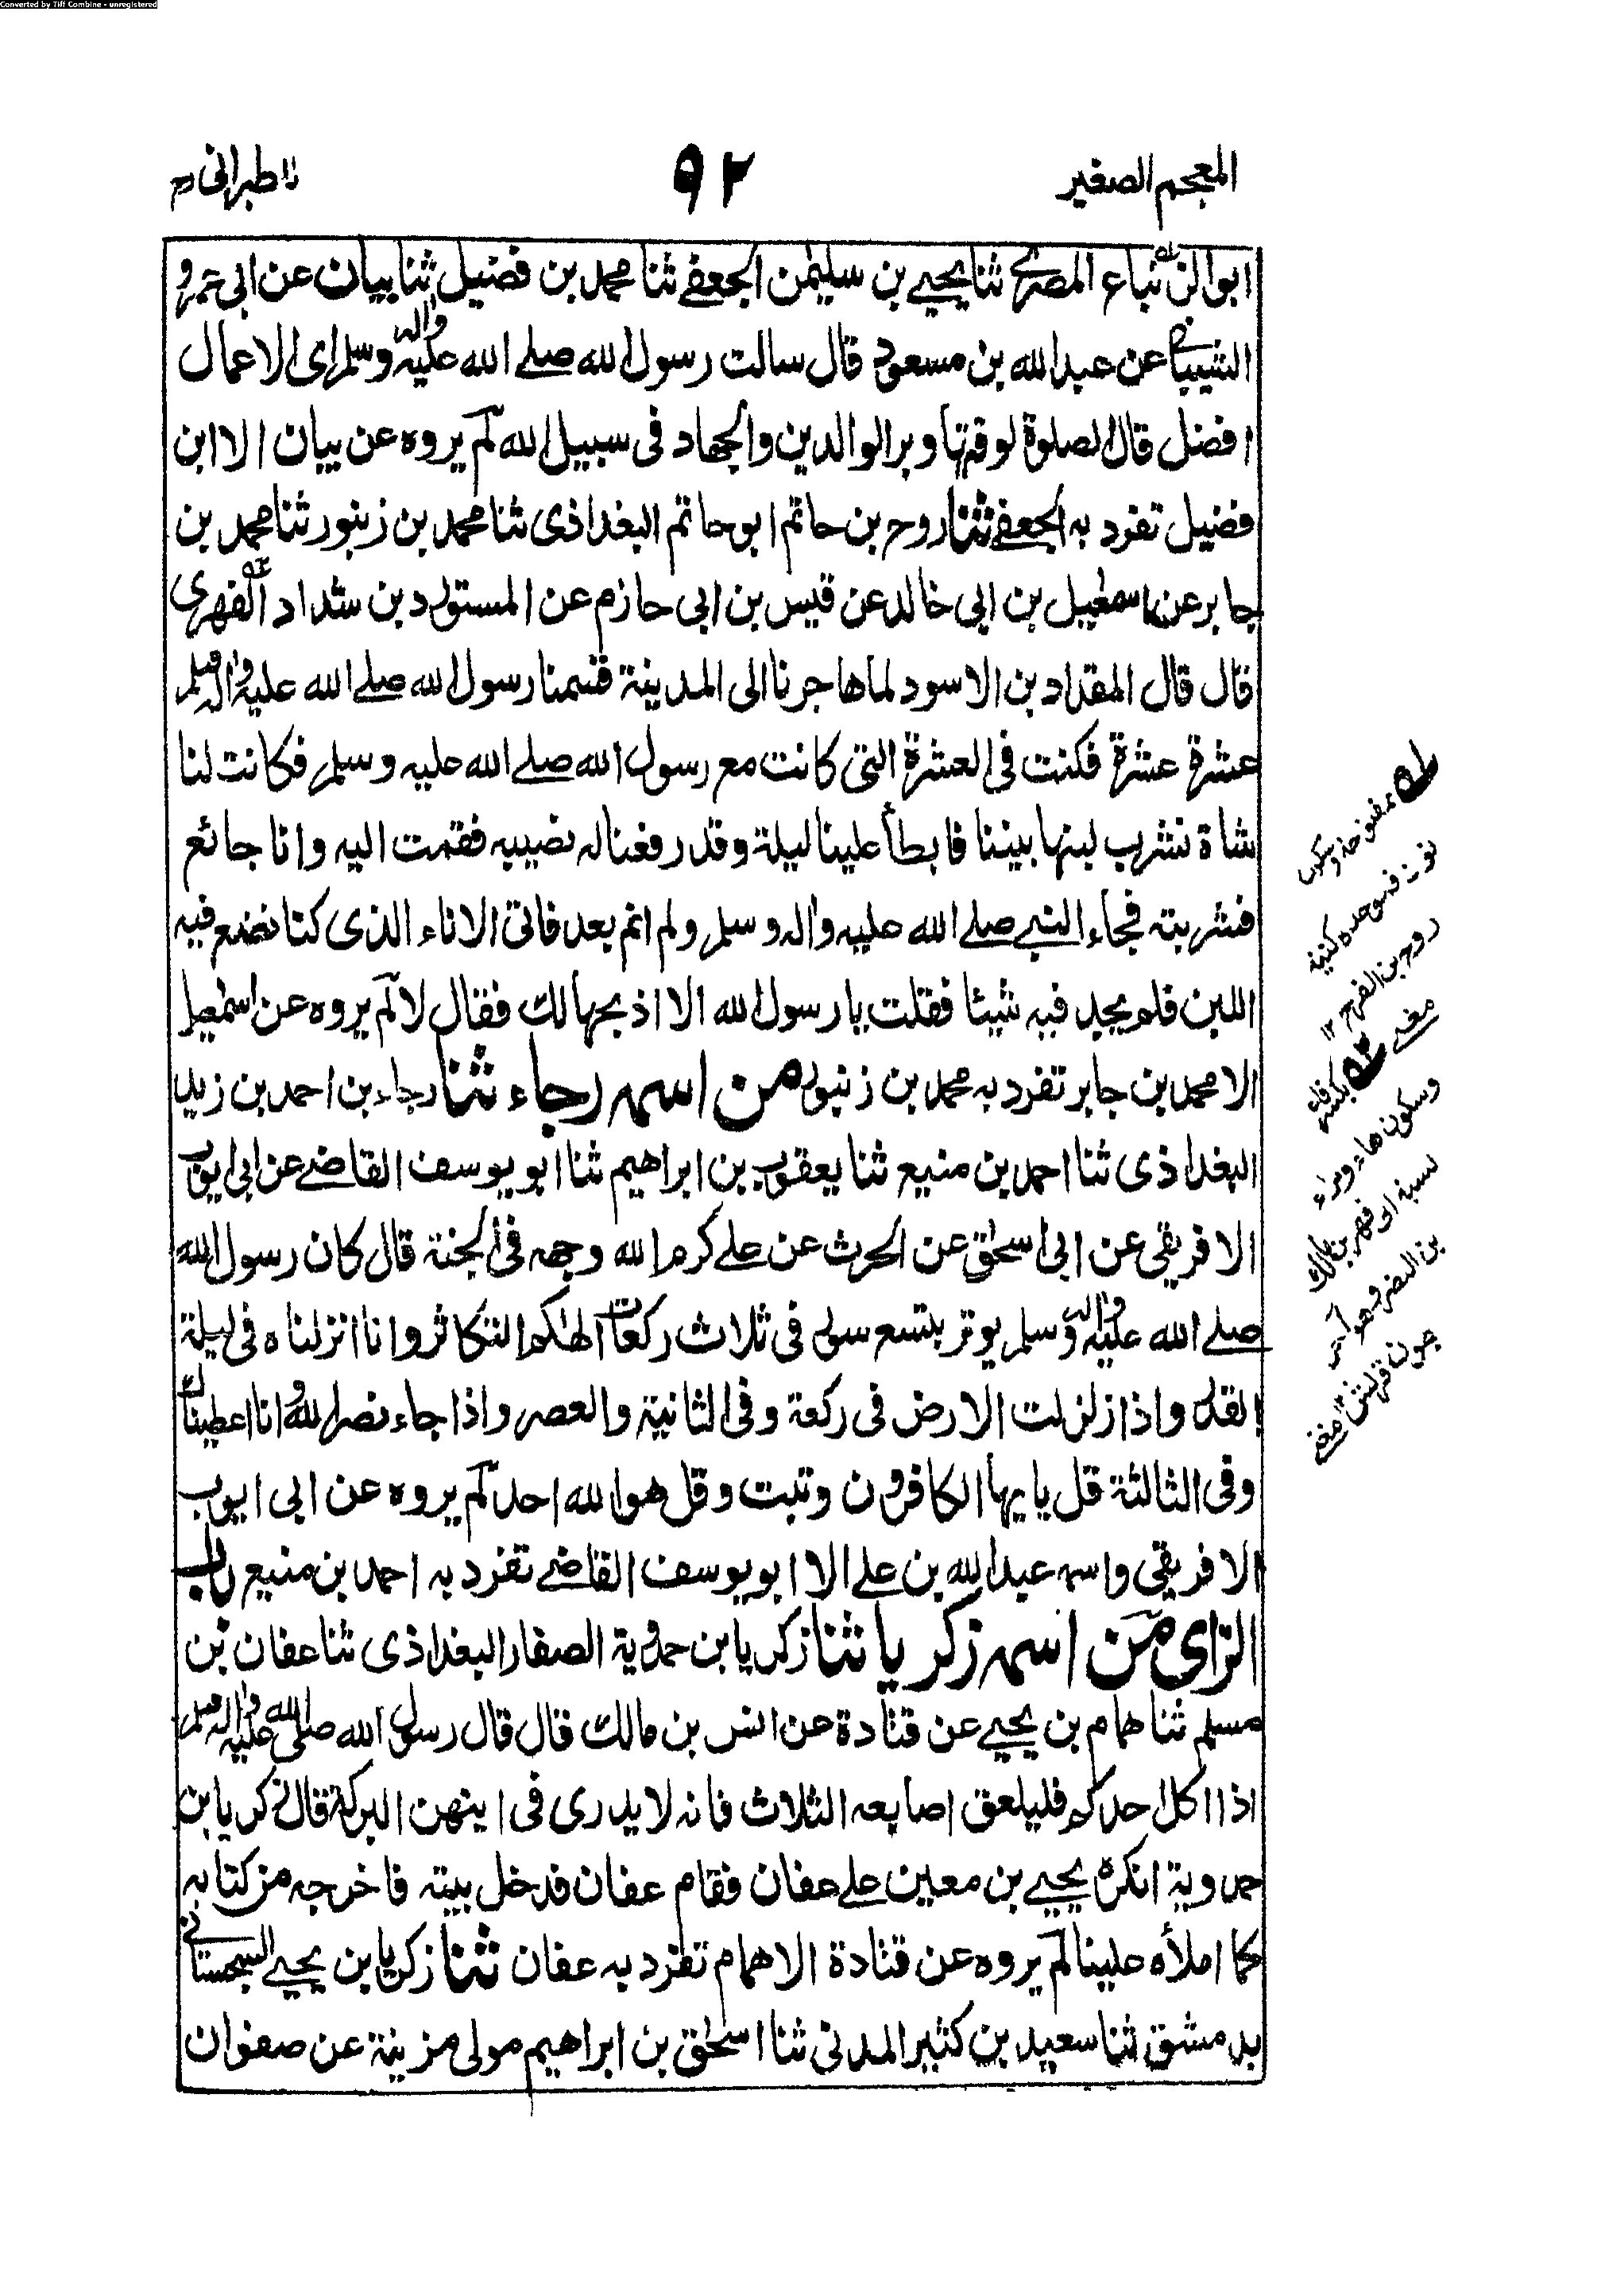 Converted by Tiff Combine - unregistered
المعجم الصغير
٩٢
طبرانی
ابو الزنباع المصری ثنا یحیے بن سلیمٰن الجعفے ثنا محمد بن فضیل ثنا بیان عن ابی عمرو
الشیبانی عن عبد الله بن مسعود قال سالت رسول الله صلے الله علیه واله وسلم ای الاعمال
افضل قال الصلوة لوقتها وبر الوالدین والجهاد فی سبیل الله لم یروه عن بیان الا ابن
فضیل تفرد به الجعفے ثنا روح بن حاتم ابو حاتم البغداذی ثنا محمد بن زنبور ثنا محمد بن
جابر عن اسمعیل بن ابی خالد عن قیس بن ابی حازم عن المستورد بن شداد الفهری
قال قال المقداد بن الاسود لما هاجرنا الی المدینة قسمنا رسول الله صلے الله علیه واله وسلم
عشرة عشرة فکنت فی العشرة التی کانت مع رسول الله صلے الله علیه وسلم فکانت لنا
شاة نشرب لبنها بیننا فابطأ علینا لیلة وقد رفعنا له نصیبه فقمت الیه وانا جائع
فشربته فجاء النبے صلے الله علیه واله وسلم ولم انم بعد فاتی الاناء الذی کنا نضع فیه
اللبن فلم یجد فیه شیئا فقلت یا رسول الله الا اذبحها لك فقال لا لم یروه عن اسمٰعیل
الا محمد بن جابر تفرد به محمد بن زنبور من اسمه رجاء ثنا رجاء بن احمد بن زید
البغداذی ثنا احمد بن منیع ثنا یعقوب بن ابراهیم ثنا ابو یوسف القاضے عن ابی ایوب
الافریقی عن ابی اسحٰق عن الحرث عن علے کرم الله وجهه فی الجنة قال کان رسول الله
صلے الله علیه واله وسلم یوتر بتسع سور فی ثلاث رکعات الهٰکم التکاثر وانا انزلناه فی لیلة
القدر واذا زلزلت الارض فی رکعة وفی الثانیة والعصر واذا جاء نصر الله وانا اعطیناك
وفی الثالثة قل یا یها الکافرون وتبت وقل هو الله احد لم یروه عن ابی ایوب
الافریقی واسمه عبد الله بن علے الا ابو یوسف القاضے تفرد به احمد بن منیع باب
الزای من اسمه زکریا ثنا زکریا بن حمدویة الصفار البغداذی ثنا عفان بن
مسلم ثنا همام بن یحیے عن قتادة عن انس بن مالك قال قال رسول الله صلی الله علیه واله وسلم
اذا اکل احدکم فلیلعق اصابعه الثلاث فانه لا یدری فی ایتهن البرکة قال زکریا بن
حمدویة انکره یحیے بن معین علے عفان فقام عفان فدخل بیته فاخرجه من کتابه
کما املأه علینا لم یروه عن قتادة الا همام تفرد به عفان ثنا زکریا بن یحیے السجستانی
بدمشق ثنا سعید بن کثیر المدنی ثنا اسحٰق بن ابراهیم مولی مزینة عن صفوان
روح بن الفرج ١٢
مغنے
وسکون هاء وبراء
نسبة الی فهر بن مالك
بن النضر